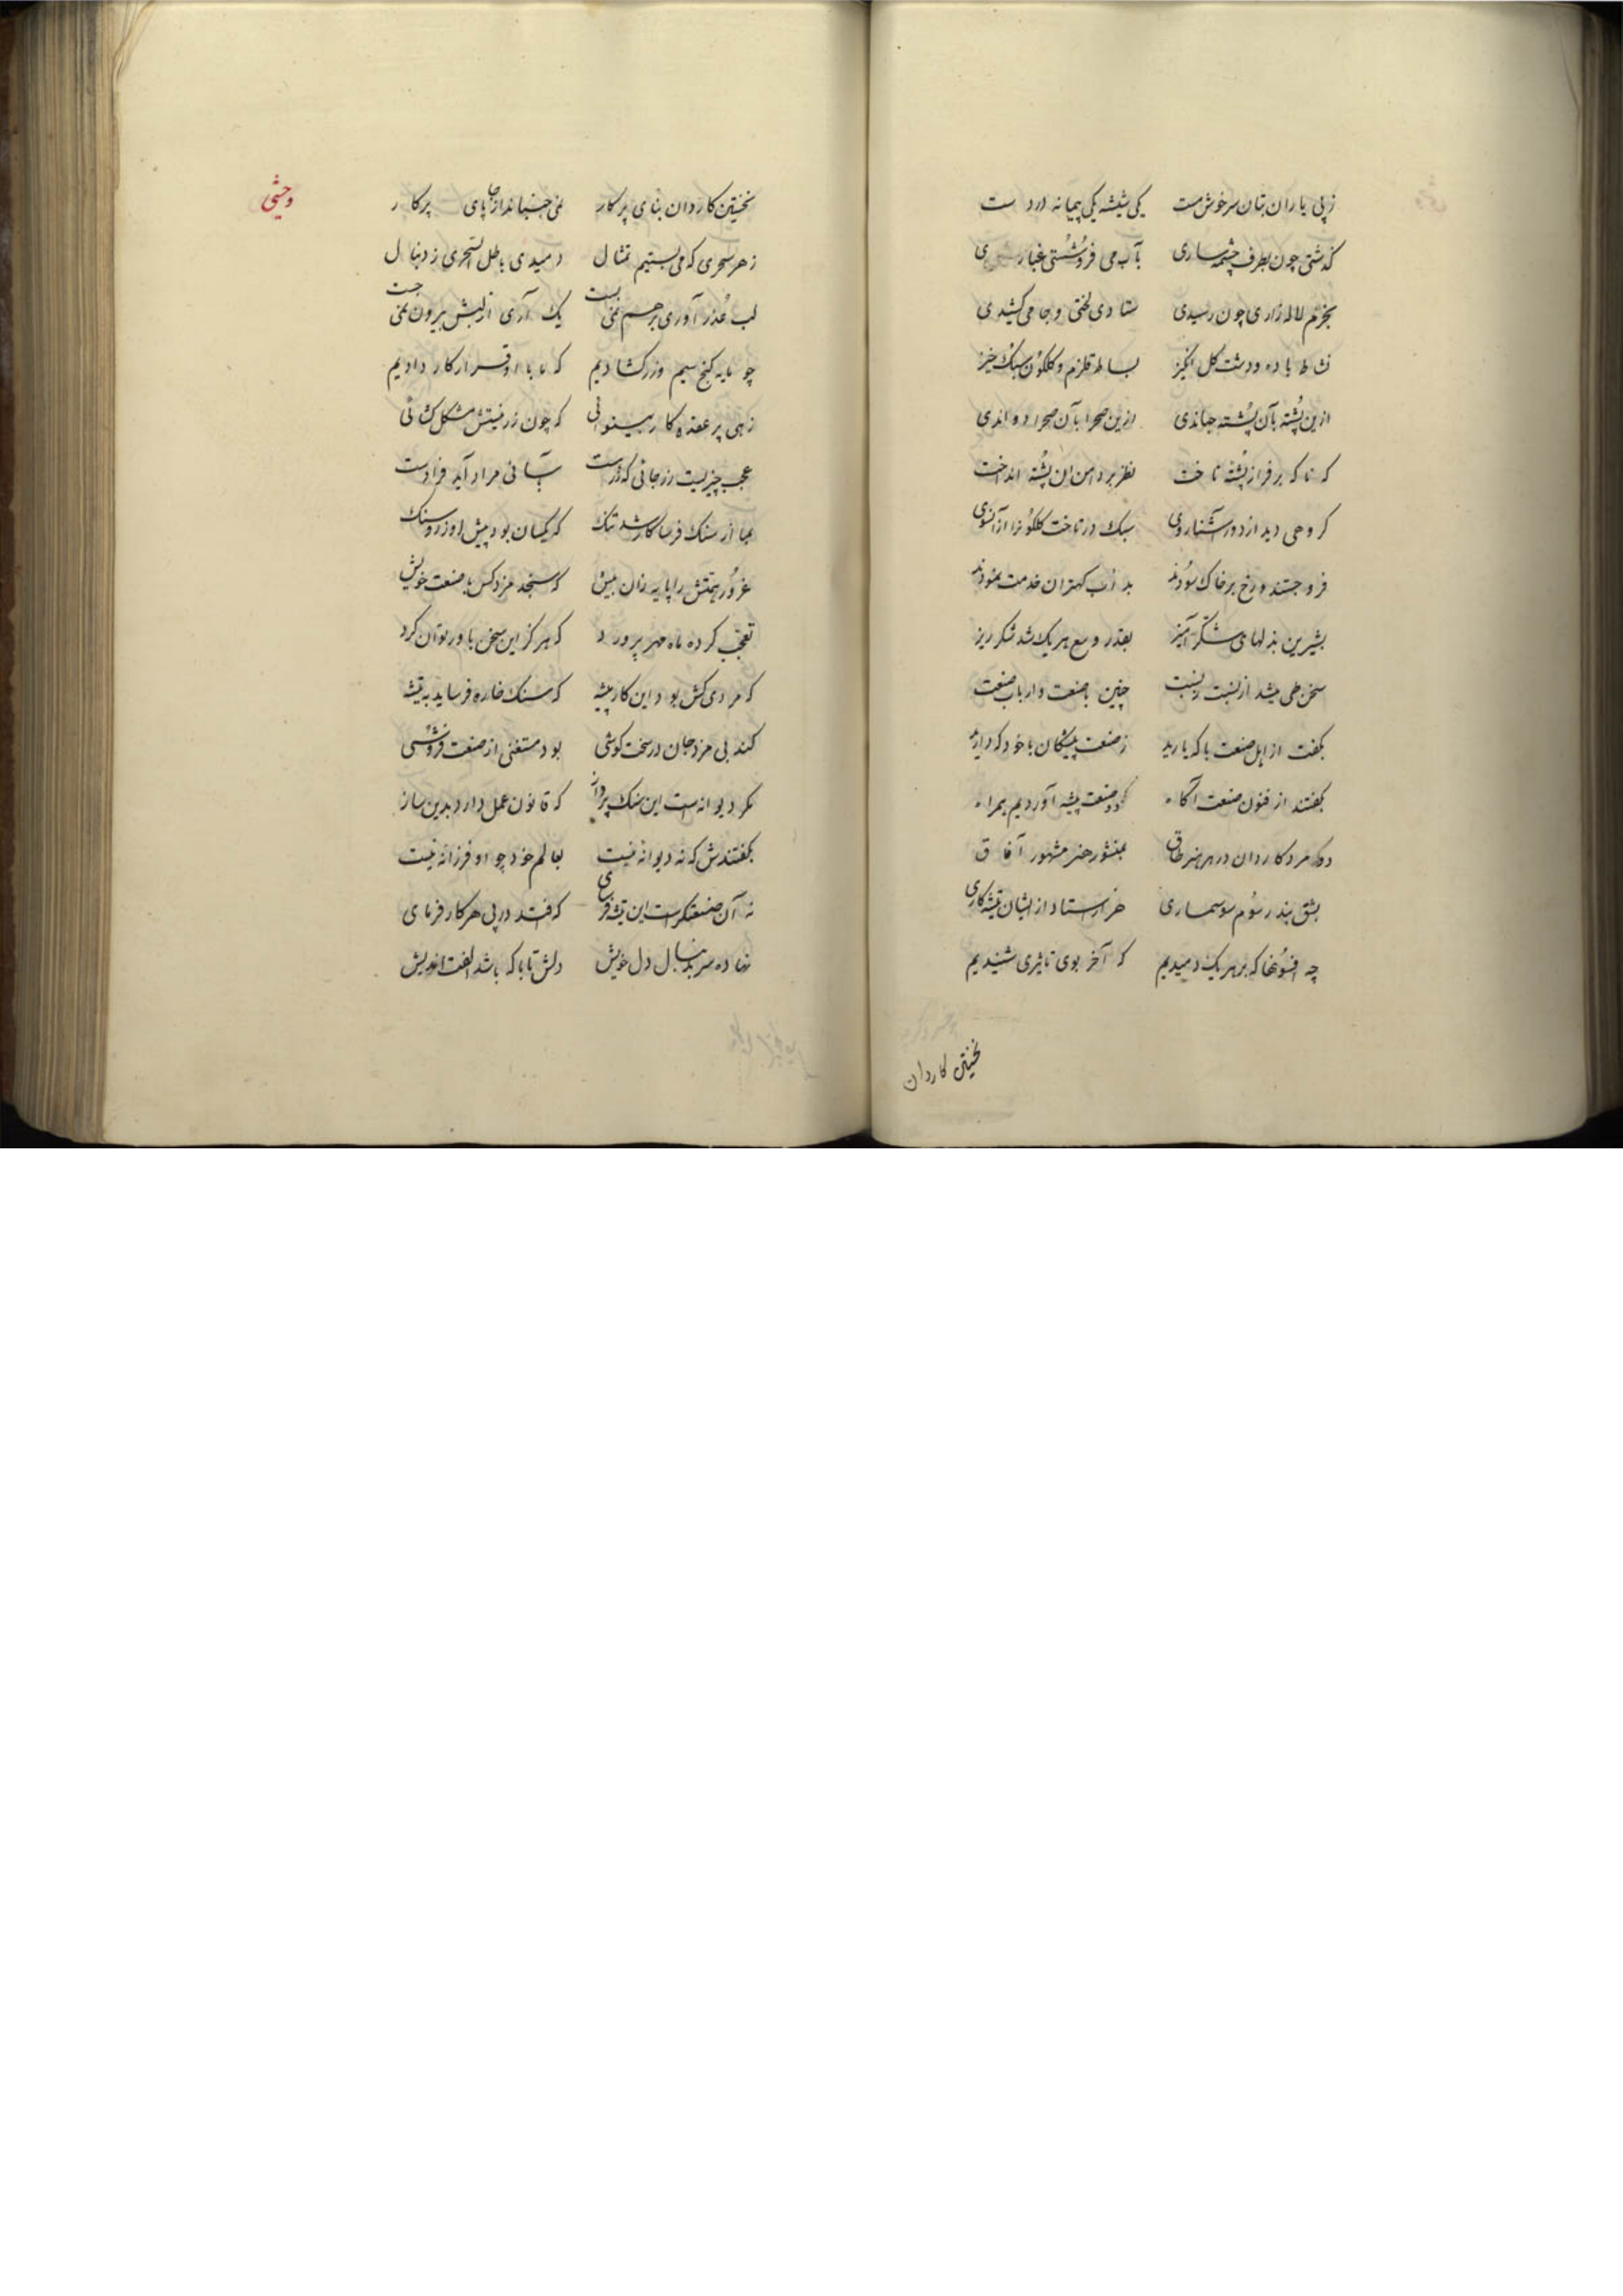 ز پی یاران بتان سرخوش مست یکی شیشه یکی پیمانه در دست
گذشتی چون بطرف چشمه ساری بآب می فروشستی غباری
بخرم لاله زاری چون رسیدی ستادی لختی و جامی کشیدی
نشاط باده و دشت گل انگیز بساط قلزم و گلگون سبک خیز
ازین پشته بآن پشته جهاندی ازین صحرا بآن صحرا دواندی
که ناگه بر فراز پشته تاخت نظر بر دامن آن پشته انداخت
گروهی دید از دور آشنا روی سبک در تاخت گلگونرا از آنسوی
فرو جستند و رخ بر خاک سودند بدأب کهتران خدمت نمودند
بشیرین بذلهای شکر آمیز بقدر وسع هر یک شد شکر ریز
سخن طی میشد از نسبت بنسبت چنین با صنعت و ارباب صنعت
بگفت از اهل صنعت با که یارید ز صنعت پیشگان با خود که دارید
بگفتند از فنون صنعت آگاه دو صنعت پیشه آوردیم همراه
دو مرد کاردان در هر هنر طاق بمنشور هنر مشهور آفاق
بشق بند رسوم سوسماری هزار استاد ازیشان تیشه کاری
چه افسونها که بر هر یک دمیدیم که آخر بوی تاثیری شنیدیم
نخستین کاردان
وحشی
نخستین کاردان بنای پر کار نمی جنبانداز جا پای پرکار
ز هر سحری که می بستیم تمثال دمیدی باطل السحری ز دنبال
لب عذر آوری بر هم نمی بست یک آری از لبش بیرون نمی جست
چو مایه گنج سیم و زر گشادیم که ما با او قرار کار دادیم
زهی پر عقده کار بینوائی که چون زر نیستش مشکل گشائی
عجب چیزیست زر جائی که زر هست بآسانی مراد آید فرا دست
اما از سنگ فرسا کار شد تنگ که یکسان بود پیش او زر و سنگ
غرور همتش را پایه زان بیش که سنجد مزد کس با صنعت خویش
تعجب کرد ماه مهر پرورد که هرگز این سخن باور توان کرد
که مردی کش بود این کار پیشه که سنگ خاره فرساید به تیشه
کند بی مزد جان در سخت کوشی بود مستغنی از صنعت فروشی
مگر دیوانه است این سنگ پرداز که قانون عمل دارد بدین ساز
بگفتندش که نه دیوانه نیست بعالم خود چو او فرزانه نیست
نه آن صنعتگرست این تیشه فرسای که افتد در پی هر کار فرمای
نهاده سر بدنبال دل خویش دلش تا با که باشد الفت اندیش